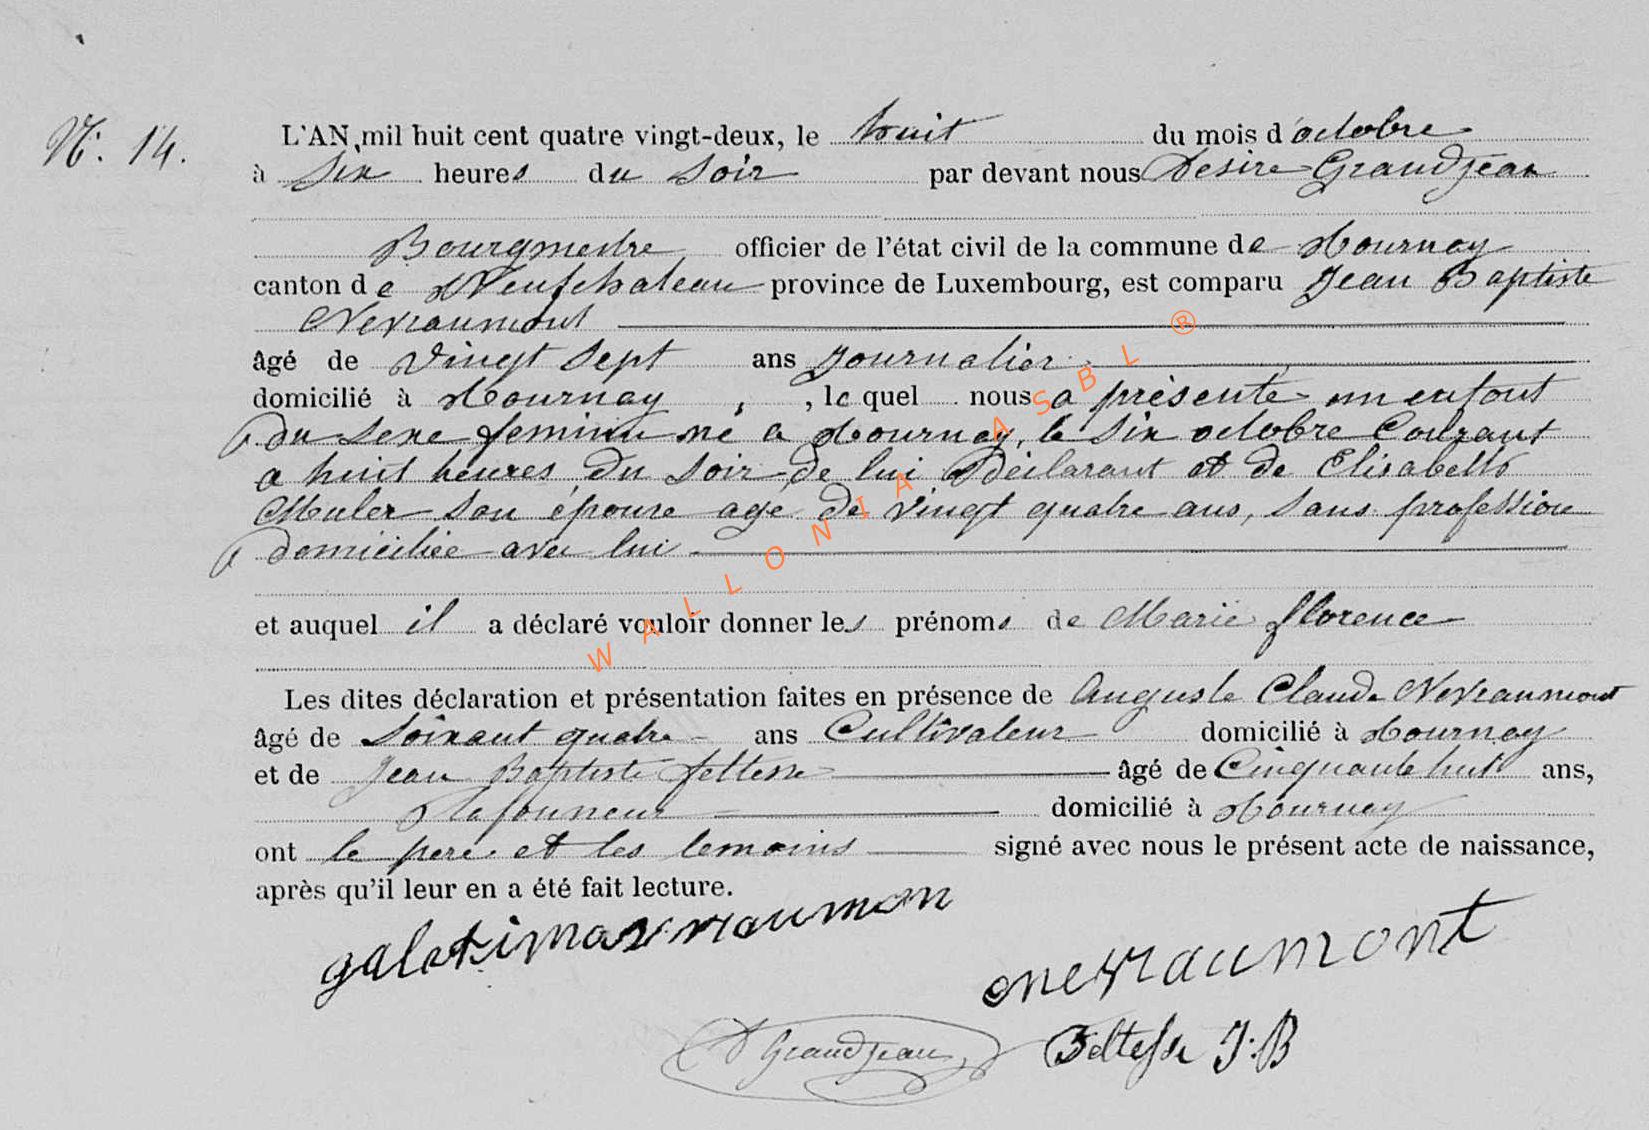 N° 14.
L'AN mil huit cent quatre vingt-deux, le huit du mois d'octobre
à six heures du soir par devant nous Désiré Grandjean
Bourgmestre officier de l'état civil de la commune de Tournay
canton de Neufchateau province de Luxembourg, est comparu Jean Baptiste
Nevraumont
âgé de vingt sept ans Journalier
domicilié à Tournay , , lequel nous a présenté un enfant
du sexe feminin né a Tournay, le six octobre Courant
a huit heures du soir de lui Déclarant et de Elisabeth
Muler son épouse agé de vingt quatre ans, sans profession
domiciliée avec lui
et auquel il a déclaré vouloir donner les prénoms de Marie florence
Les dites déclaration et présentation faites en présence de Auguste Claude Nevraumont
âgé de Soixant quatre ans Cultivateur domicilié à Tournay
et de Jean Baptiste feltesse âgé de Cinquante huit ans,
Plafonneur domicilié à Tournay
ont le pere et les temoins signé avec nous le présent acte de naissance,
après qu'il leur en a été fait lecture.
nevraumont
D Grandjean Feltesse J.B
WALLONIA ASBL ®